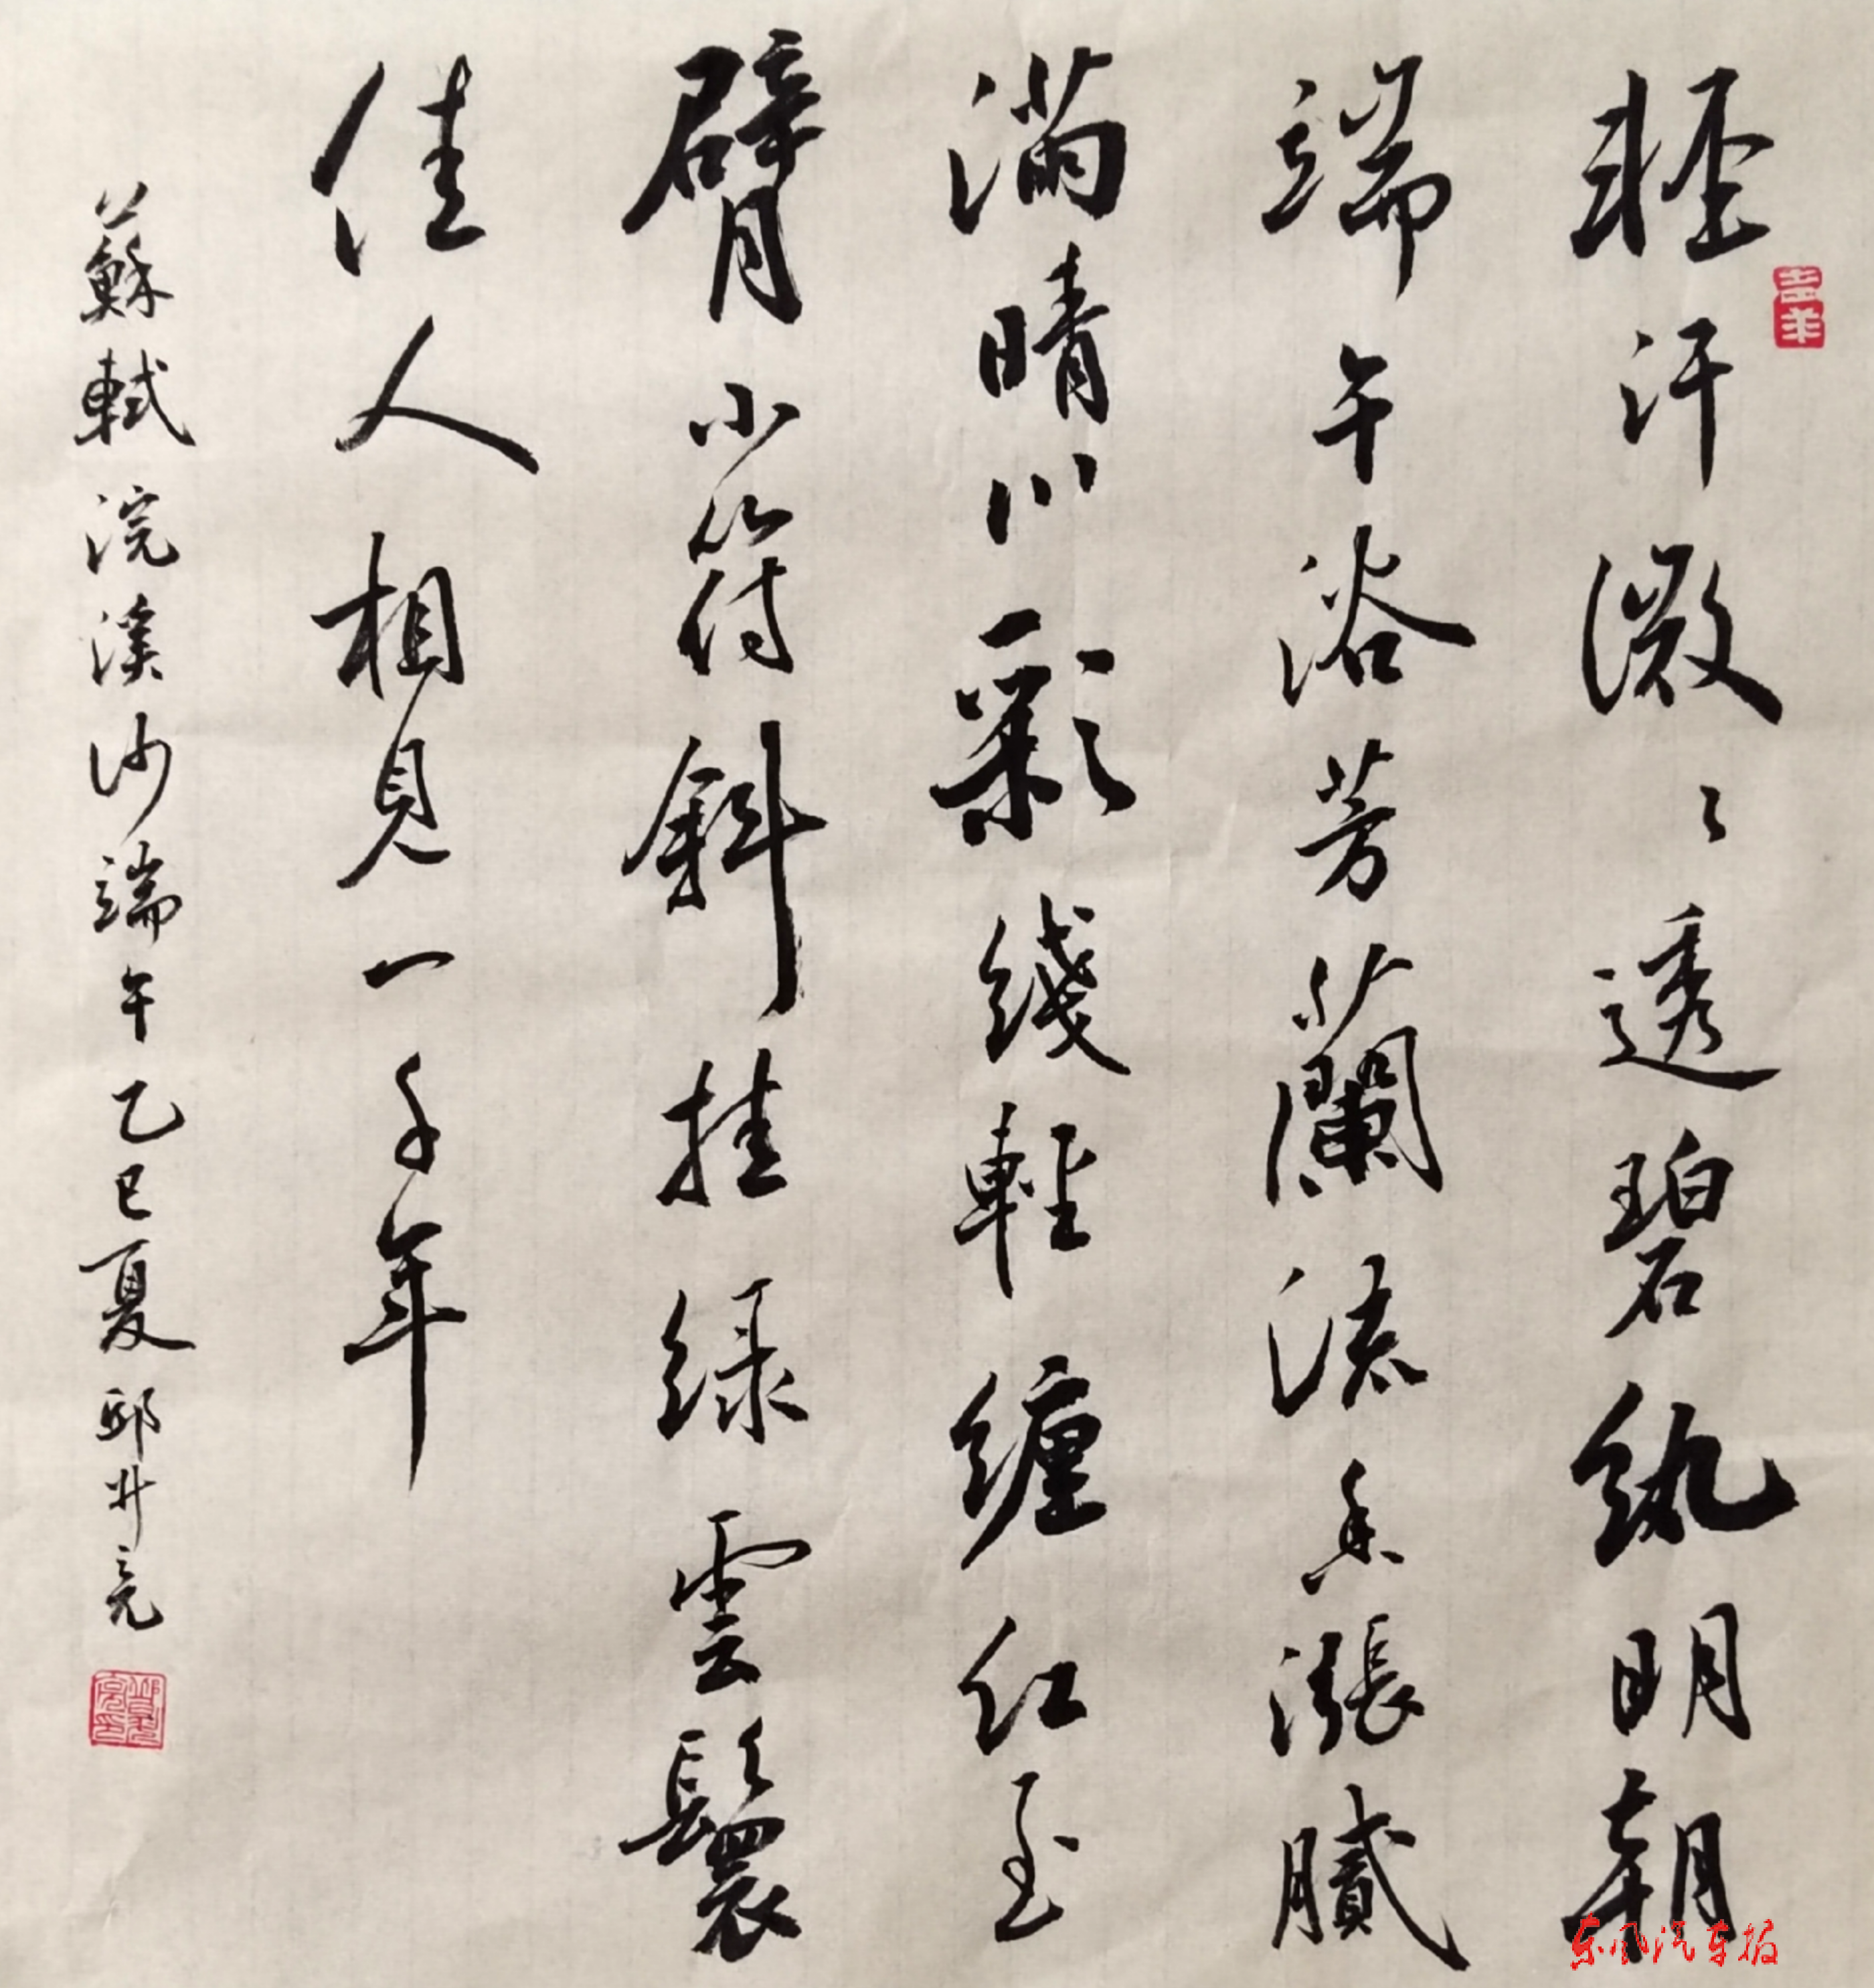 輕汗微〻透碧紈明朝
端午浴芳蘭流香漲膩
滿晴川彩綫輕纏红玉
臂小符斜挂绿雲鬟
佳人相見一千年
蘇軾浣溪沙端午乙巳夏邱廾亮
东风汽车报